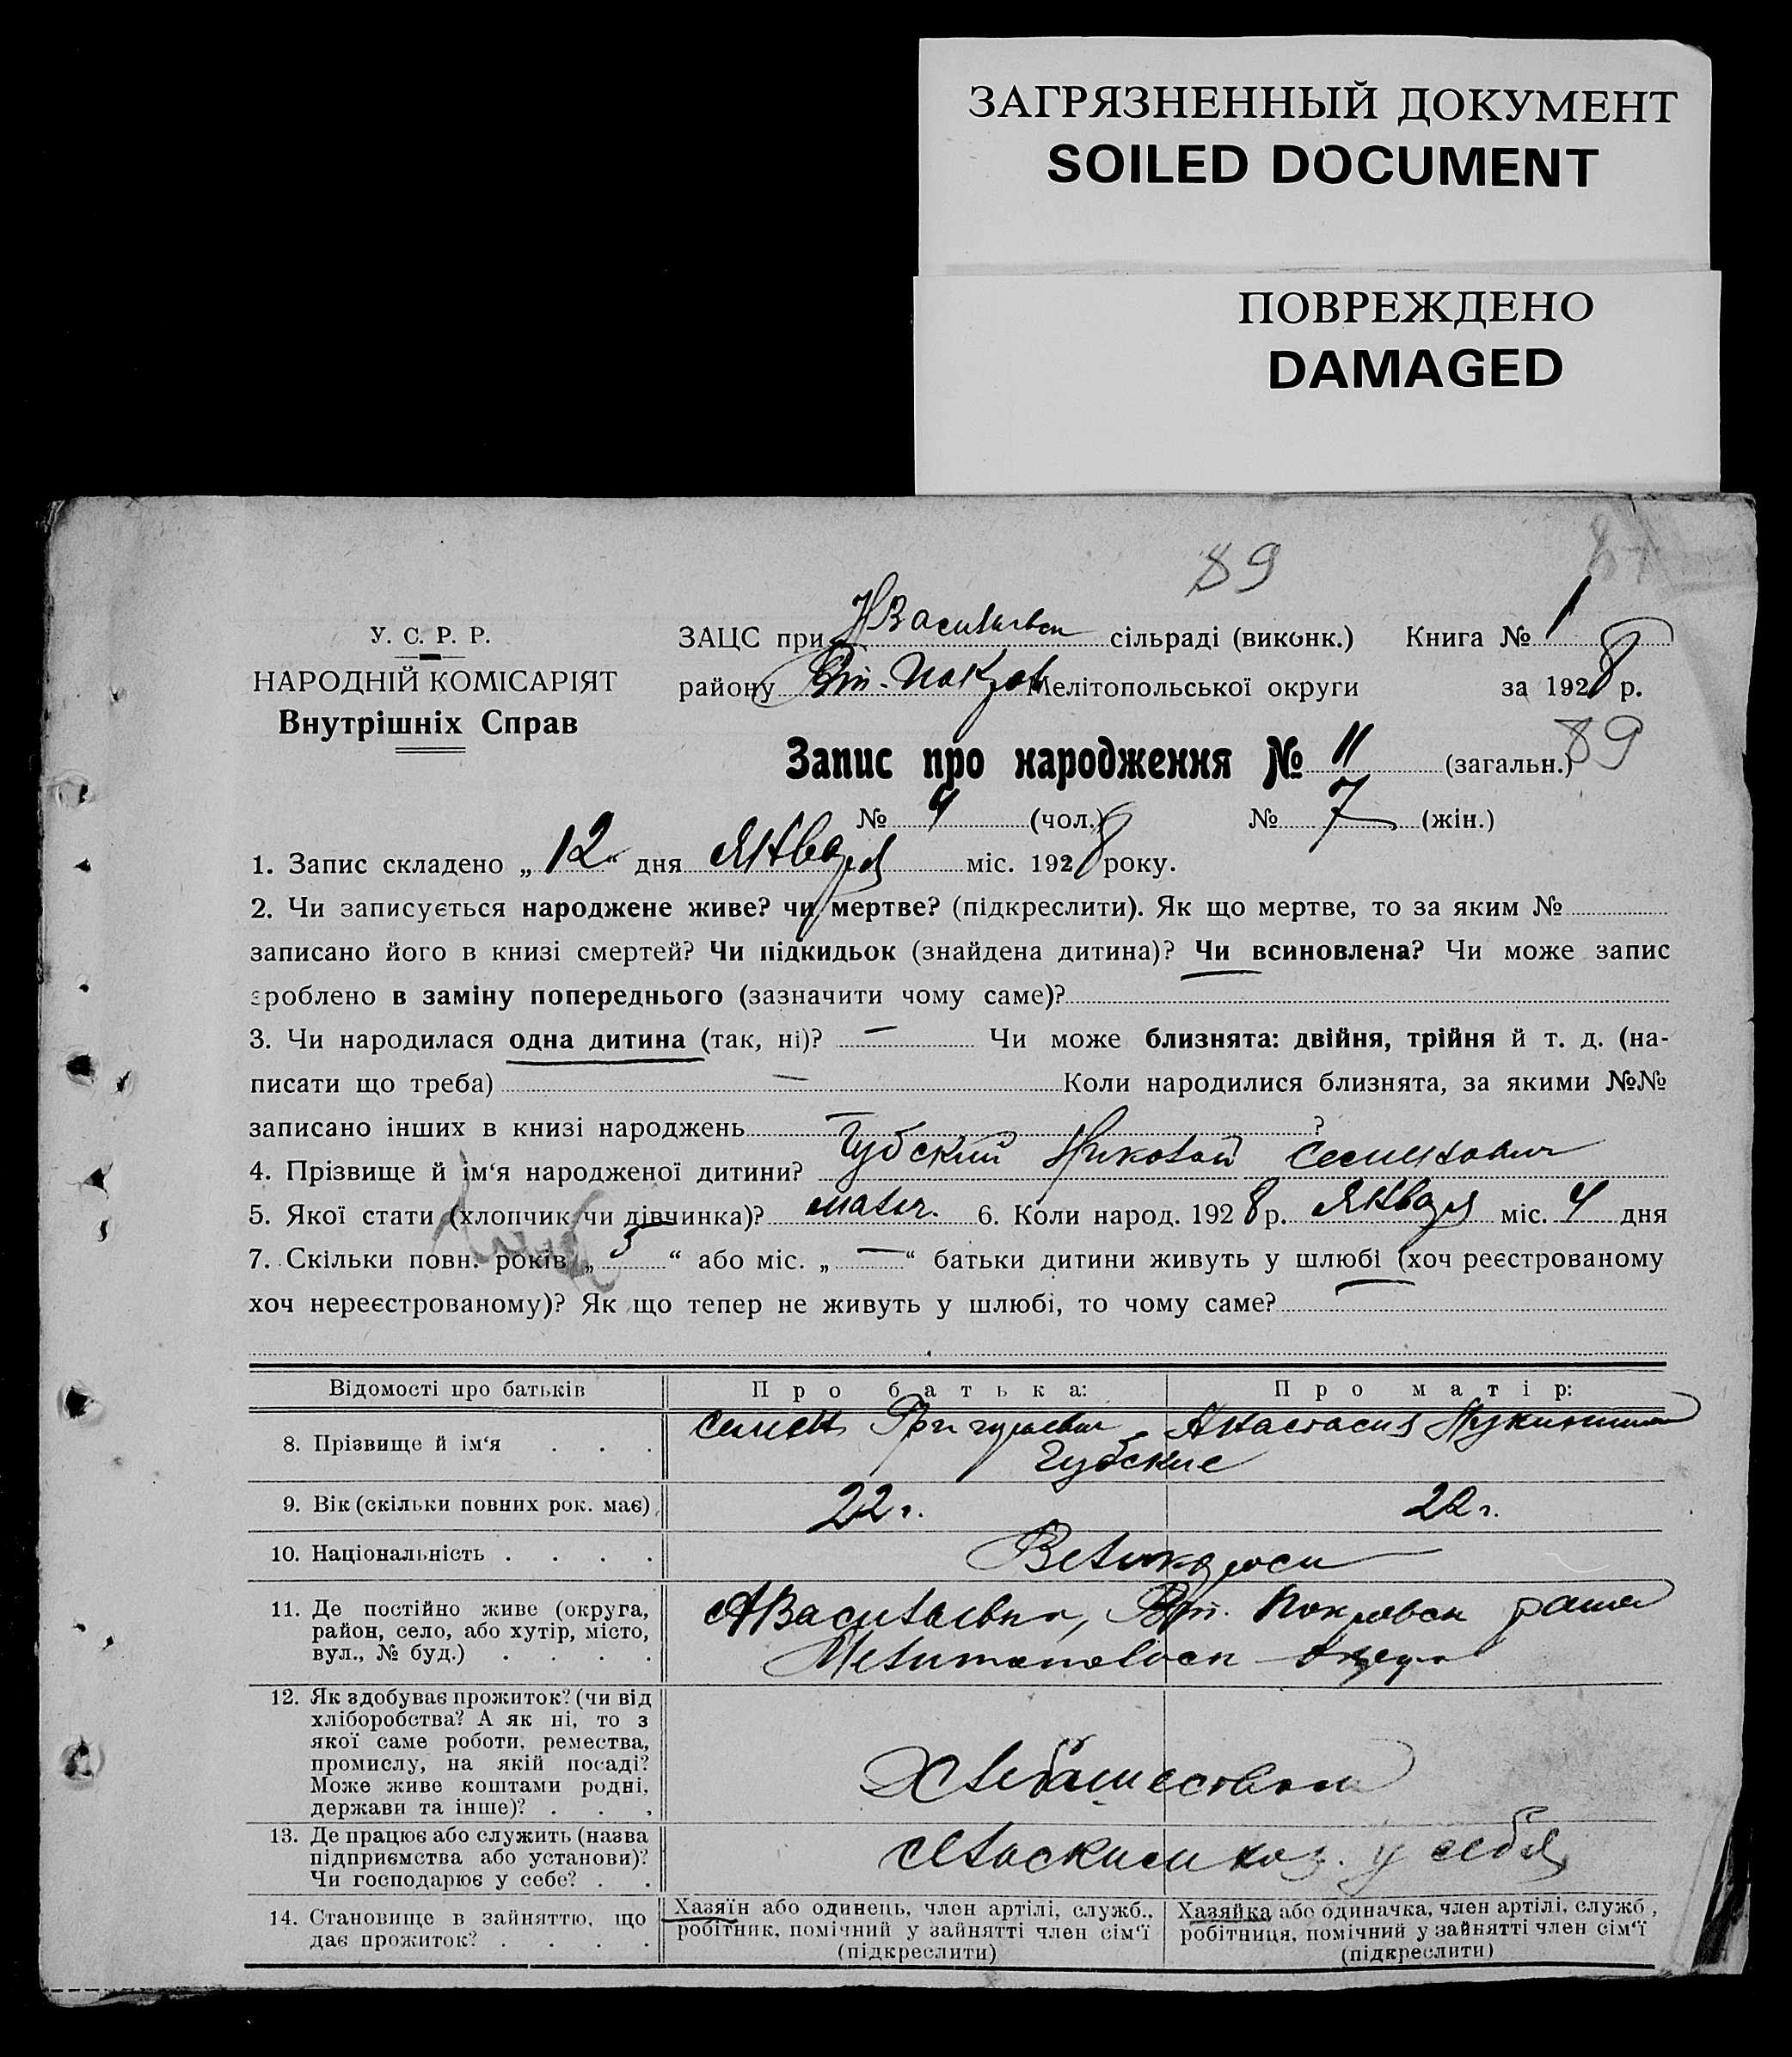 ЗАГРЯЗНЕННЫЙ ДОКУМЕНТ
SOILED DOCUMENT
ПОВРЕЖДЕНО
DAMAGED
89
У. С. Р. Р.
НАРОДНІЙ КОМІСАРІЯТ
Внутрішніх Справ
ЗАЦС при сільраді (виконк.) Книга № 1
району Мелітопольської округи за 1928 р.
Запис про народження № 11 (загальн.) 89
№ 4 (чол.) № 7 (жін.)
1. Запис складено „ 12 “ дня Января міс. 1928 року.
2. Чи записується народжене живе? чи мертве? (підкреслити). Як що мертве, то за яким №
записано його в книзі смертей? Чи підкидьок (знайдена дитина)? Чи всиновлена? Чи може запис
зроблено в заміну попереднього (зазначити чому саме)?
3. Чи народилася одна дитина (так, ні)? — Чи може близнята: двійня, трійня й т. д. (на-
писати що треба) — Коли народилися близнята, за якими №№
записано інших в книзі народжень ?
4. Прізвище й ім‘я народженої дитини? Губский Николай Семенович
5. Якої стати (хлопчик чи дівчинка)? мальч. 6. Коли народ. 1928 р. Января міс. 4 дня
7. Скільки повн. років „ 3 “ або міс. „ — “ батьки дитини живуть у шлюбі (хоч реєстрованому
хоч нереєстрованому)? Як що тепер не живуть у шлюбі, то чому саме?
Відомості про батьків Про батька: Про матір:
8. Прізвище й ім‘я . . . Семен Григорьевич Анастасия
Губские
9. Вік (скільки повних рок. має) 22 г. 22 г.
10. Національність . . . . Великороси
11. Де постійно живе (округа,
район, село, або хутір, місто,
вул., № буд.) . . . .
12. Як здобуває прожиток? (чи від
хліборобства? А як ні, то з
якої саме роботи, ремества,
промислу, на якій посаді?
Може живе коштами родні,
держави та інше)? . . .
Хлебопашеством
13. Де працює або служить (назва
підприємства або установи)?
Чи господарює у себе? . .
хоз. у себя
14. Становище в зайняттю, що
дає прожиток? . . . .
Хазяїн або одинець, член артілі, служб.,
робітник, помічний у зайнятті член сім‘ї
(підкреслити)
Хазяйка або одиначка, член артілі, служб.,
робітниця, помічний у зайнятті член сім‘ї
(підкреслити)